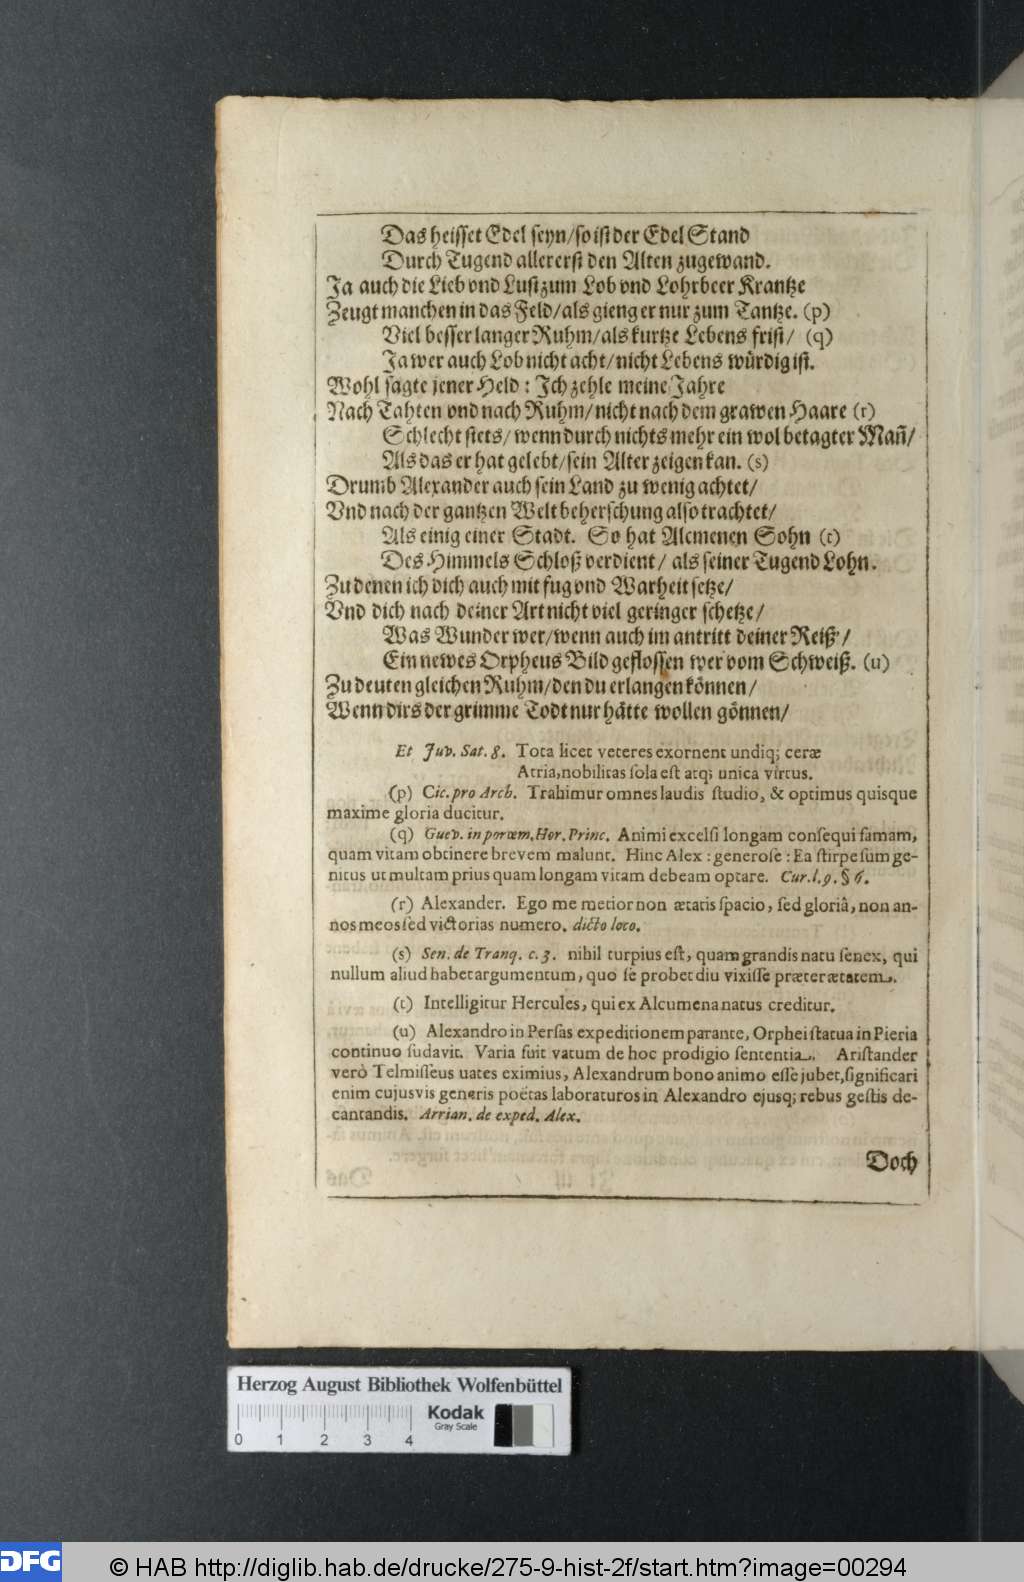 Das heisset Edel seyn/so ist der Edel Stand
Durch Tugend allererst den Alten zugewand.
Ja auch die Lieb vnd Lust zum Lob vnd Lohrbeer Krantze
Zeugt manchen in das Feld/als gieng er nur zum Tantze. (p)
Viel besser langer Ruhm/als kurtze Lebens frist/ (q)
Ja wer auch Lob nicht acht/nicht Lebens würdig ist.
Wohl sagte jener Held: Ich zehle meine Jahre
Nach Tahten vnd nach Ruhm/nicht nach dem grawen Haare (r)
Schlecht stets/wenn durch nichts mehr ein wol betagter Mañ/
Als das er hat gelebt/sein Alter zeigen kan. (s)
Drumb Alexander auch sein Land zu wenig achtet/
Vnd nach der gantzen Welt beherschung also trachtet/
Als einig einer Stadt. So hat Alcmenen Sohn (t)
Des Himmels Schloß verdient/ als seiner Tugend Lohn.
Zu denen ich dich auch mit fug vnd Warheit setze/
Vnd dich nach deiner Art nicht viel geringer schetze/
Was Wunder wer/wenn auch im antritt deiner Reiß/
Ein newes Orpheus Bild geflossen wer vom Schweiß. (u)
Zu deuten gleichen Ruhm/den du erlangen können/
Wenn dirs der grimme Todt nur hätte wollen gönnen/
Et Juv. Sat. 8. Tota licet veteres exornent undiq; ceræ
Atria, nobilitas sola est atq; unica virtus.
(p) Cic. pro Arch. Trahimur omnes laudis studio, & optimus quisque
maxime gloria ducitur.
(q) Guev. in poroem. Hor. Princ. Animi excelsi longam consequi famam,
quam vitam obtinere brevem malunt. Hinc Alex: generose: Ea stirpe sum ge-
nitus ut multam prius quam longam vitam debeam optare. Cur. l. 9. § 6.
(r) Alexander. Ego me metior non ætatis spacio, sed gloriâ, non an-
nos meos sed victorias numero. dicto loco.
(s) Sen. de Tranq. c. 3. nihil turpius est, quam grandis natu senex, qui
nullum aliud habet argumentum, quo se probet diu vixisse præter ætatem.
(t) Intelligitur Hercules, qui ex Alcumena natus creditur.
(u) Alexandro in Persas expeditionem parante, Orphei statua in Pieria
continuo sudavit. Varia fuit vatum de hoc prodigio sententia. Aristander
verò Telmisseus uates eximius, Alexandrum bono animo esse jubet, significari
enim cujusvis generis poëtas laboraturos in Alexandro ejusq; rebus gestis de-
cantandis. Arrian. de exped. Alex.
Doch
Herzog August Bibliothek Wolfenbüttel
Kodak
Gray Scale
0 1 2 3 4
DFG
© HAB http://diglib.hab.de/drucke/275-9-hist-2f/start.htm?image=00294